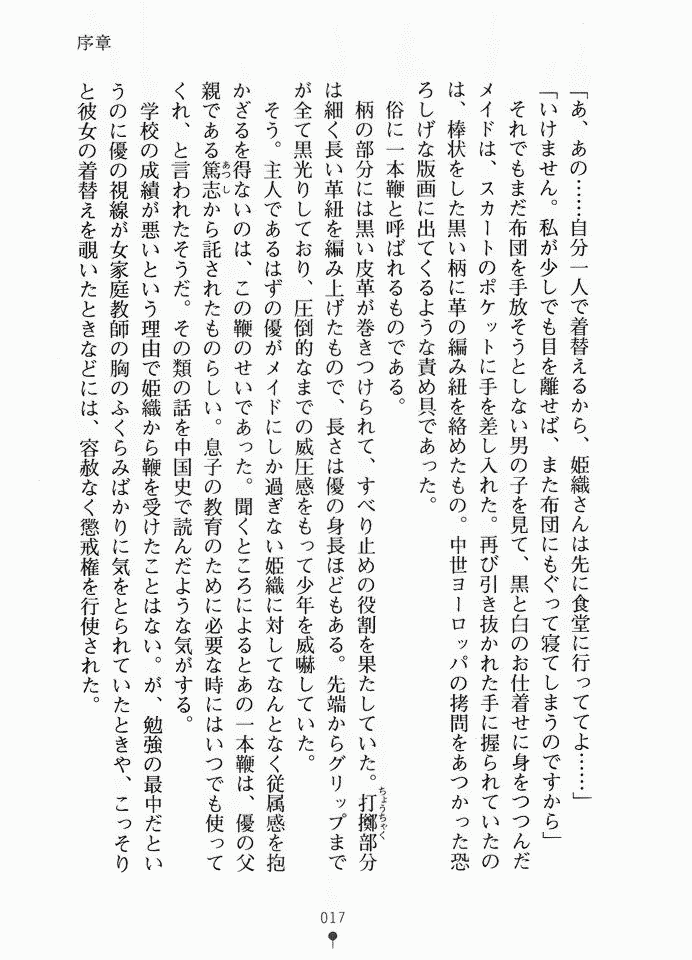 序章
「あ、あの……自分一人で着替えるから、姫織さんは先に食堂に行っててよ……」
「いけません。私が少しでも目を離せば、また布団にもぐって寝てしまうのですから」
それでもまだ布団を手放そうとしない男の子を見て、黒と白のお仕着せに身をつつんだ
メイドは、スカートのポケットに手を差し入れた。再び引き抜かれた手に握られていたの
は、棒状をした黒い柄に革の編み紐を絡めたもの。中世ヨーロッパの拷問をあつかった恐
ろしげな版画に出てくるような責め具であった。
俗に一本鞭と呼ばれるものである。
柄の部分には黒い皮革が巻きつけられて、すべり止めの役割を果たしていた。打擲部分
は細く長い革紐を編み上げたもので、長さは優の身長ほどもある。先端からグリップまで
が全て黒光りしており、圧倒的なまでの威圧感をもって少年を威嚇していた。
そう。主人であるはずの優がメイドにしか過ぎない姫織に対してなんとなく従属感を抱
かざるを得ないのは、この鞭のせいであった。聞くところによるとあの一本鞭は、優の父
親である篤志から託されたものらしい。息子の教育のために必要な時にはいつでも使って
くれ、と言われたそうだ。その類の話を中国史で読んだような気がする。
学校の成績が悪いという理由で姫織から鞭を受けたことはない。が、勉強の最中だとい
うのに優の視線が女家庭教師の胸のふくらみばかりに気をとられていたときや、こっそり
と彼女の着替えを覗いたときなどには、容赦なく懲戒権を行使された。
017